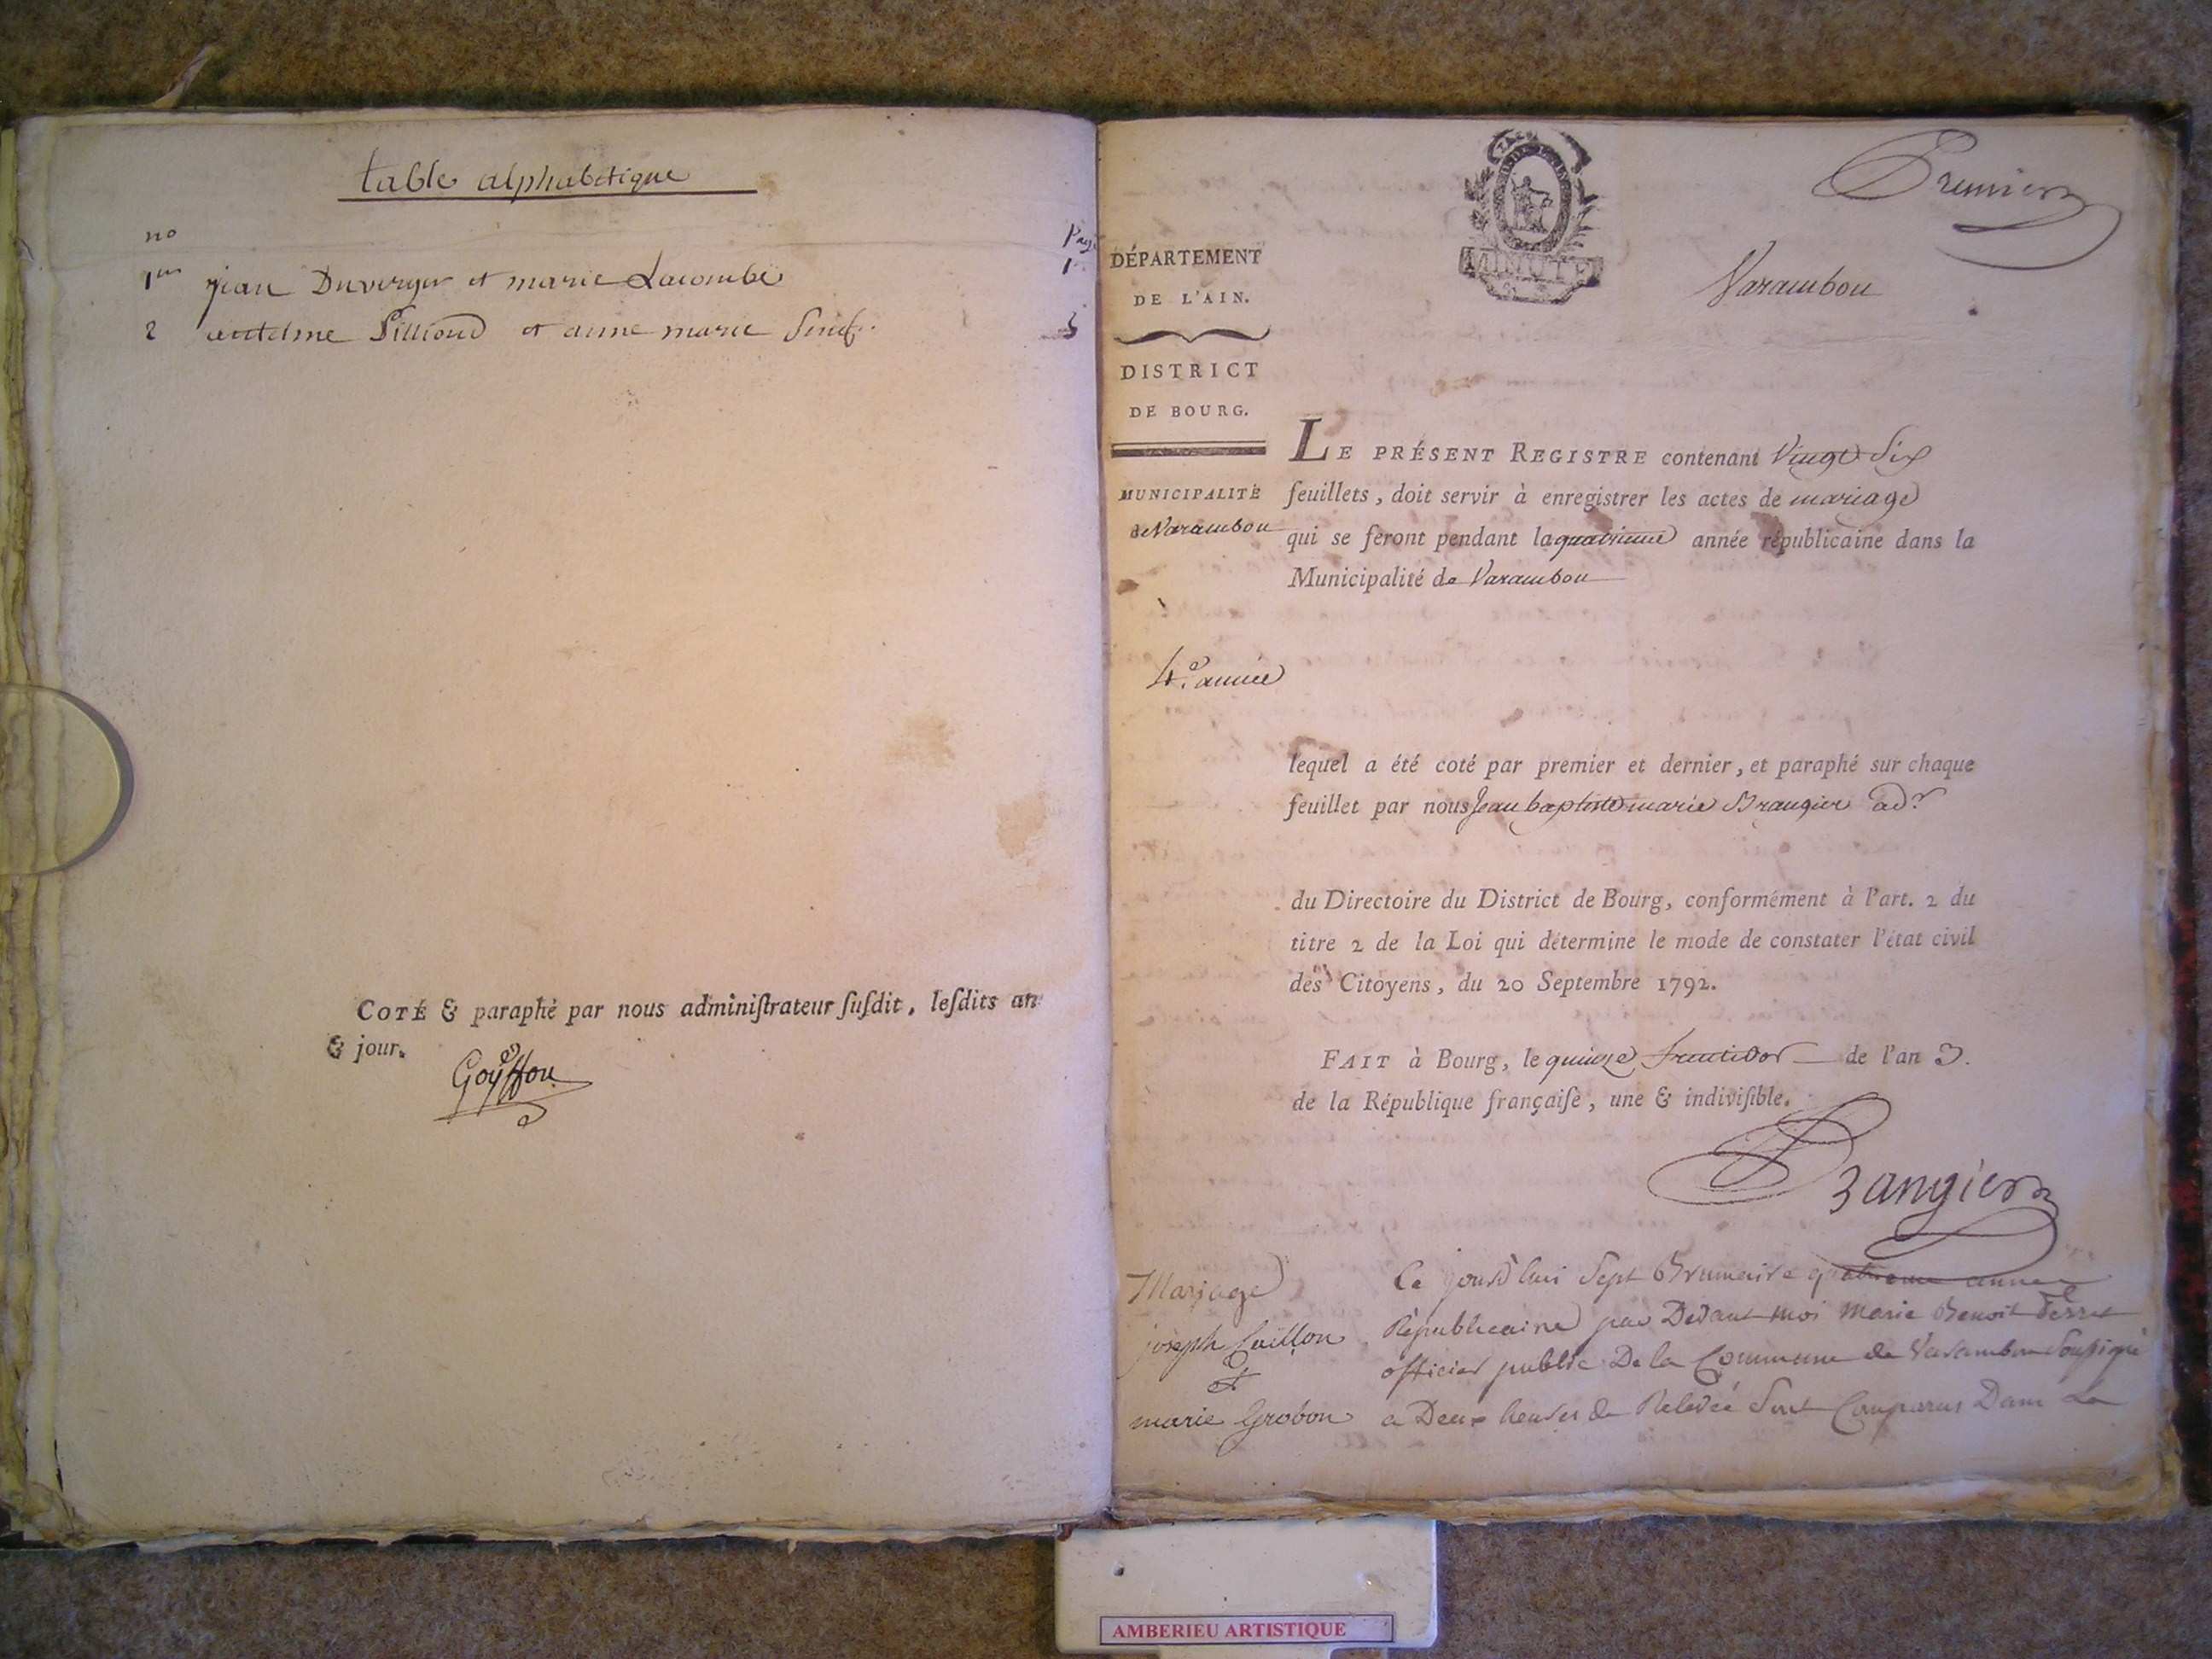 table alphabetique
no
Page
1er jean Duverger et marie Lacombe 1
2 antelme Pillioud et anne marie
Coté & paraphé par nous administrateur susdit, lesdits an
& jour.
Goyffon
Premier
MINUTE
Varambon
DÉPARTEMENT
DE L'AIN.
DISTRICT
DE BOURG.
MUNICIPALITÉ
de Varambon
LE PRÉSENT REGISTRE contenant Vingt Six
feuillets, doit servir à enregistrer les actes de mariage
qui se feront pendant la quatrieme année républicaine dans la
Municipalité de Varambon
4e. année
lequel a été coté par premier et dernier, et paraphé sur chaque
feuillet par nous Jean baptiste marie Brangier adr
du Directoire du District de Bourg, conformément à l'art. 2 du
titre 2 de la Loi qui détermine le mode de constater l'état civil
des Citoyens, du 20 Septembre 1792.
FAIT à Bourg, le quinze fructidor de l'an 3.
de la République française, une & indivisible.
Brangier
Mariage
joseph Caillon
et
marie Grobon
Ce jourd'hui Sept Brumaire quatrieme annee
Republicaine par Devant moi Marie Benoit
officier public De la Commune de Varambon Soussigné
a Deux heures de Relevée Sont Comparus Dans La
AMBERIEU ARTISTIQUE